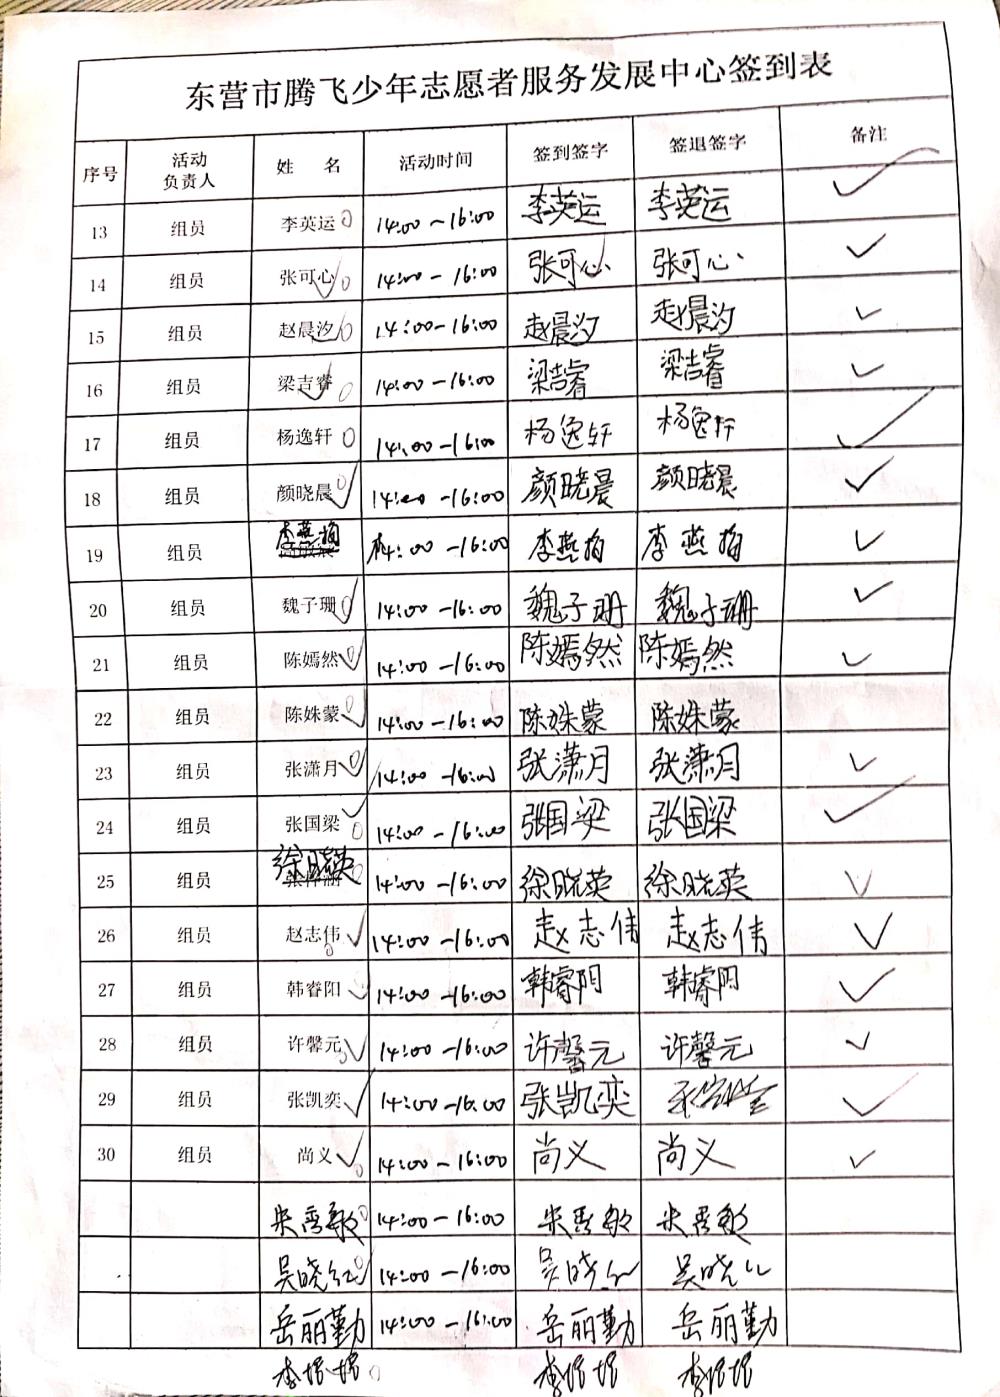 东营市腾飞少年志愿者服务发展中心签到表
序号 活动负责人 姓 名 活动时间 签到签字 签退签字 备注
13 组员 李英运 14:00~16:00 李英运 李英运 ✓
14 组员 张可心 14:00-16:00 张可心 张可心 ✓
15 组员 赵晨汐 14:00-16:00 赵晨汐 赵晨汐 ✓
16 组员 梁吉睿 14:00-16:00 梁吉睿 梁吉睿 ✓
17 组员 杨逸轩 14:00-16:00 杨逸轩 杨逸轩 ✓
18 组员 颜晓晨 14:00-16:00 颜晓晨 颜晓晨 ✓
19 组员 李燕梅 14:00-16:00 李燕梅 李燕梅 ✓
20 组员 魏子珊 14:00-16:00 魏子珊 魏子珊 ✓
21 组员 陈嫣然 14:00-16:00 陈嫣然 陈嫣然 ✓
22 组员 陈姝蒙 14:00-16:00 陈姝蒙 陈姝蒙
23 组员 张潇月 14:00-16:00 张潇月 张潇月 ✓
24 组员 张国梁 14:00-16:00 张国梁 张国梁 ✓
25 组员 徐晓英 14:00-16:00 徐晓英 徐晓英 ✓
26 组员 赵志伟 14:00-16:00 赵志伟 赵志伟 ✓
27 组员 韩睿阳 14:00-16:00 韩睿阳 韩睿阳 ✓
28 组员 许馨元 14:00-16:00 许馨元 许馨元 ✓
29 组员 张凯奕 14:00-16:00 张凯奕 ✓
30 组员 尚义 14:00-16:00 尚义 尚义 ✓
14:00-16:00
吴晓红 14:00-16:00 吴晓红 吴晓红
岳丽勤 14:00-16:00 岳丽勤 岳丽勤